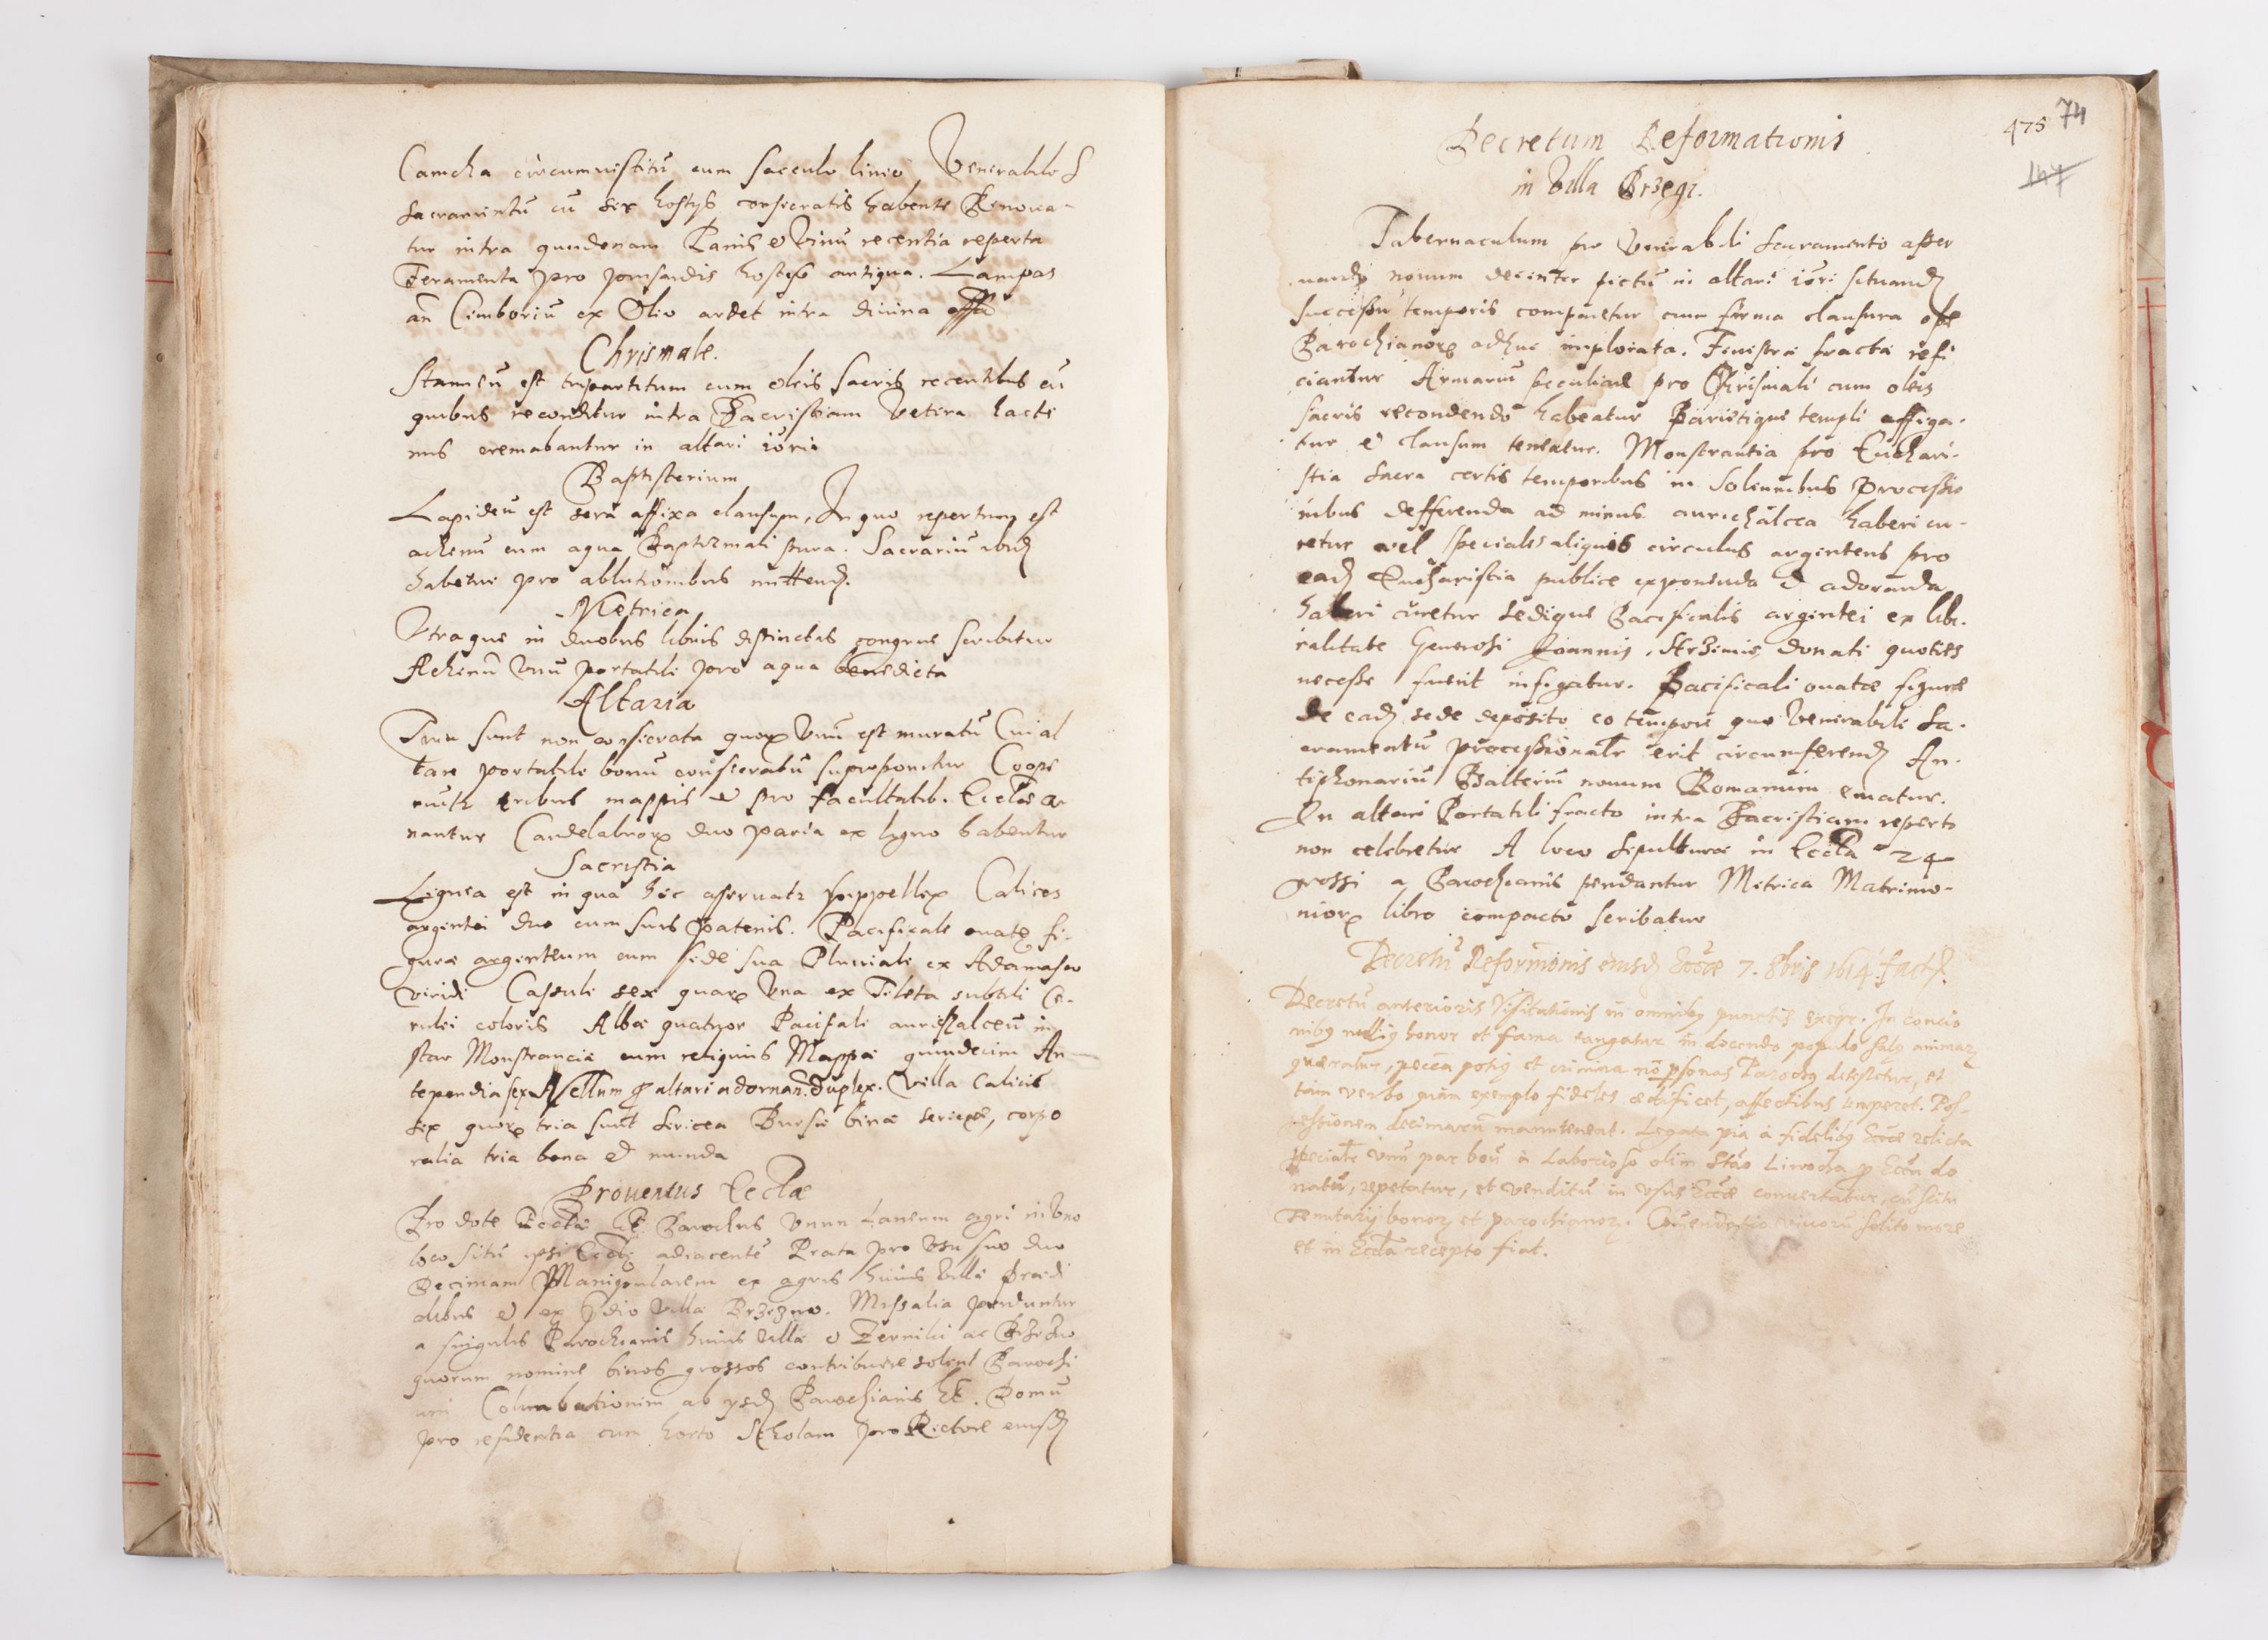 Camcha circumuistitū cum sacculo lineo Venerabile
Sacramentū cū sex hostys consecratis habente Renoua-
tur intra quindenam Panis et Vinū recentia reperta
Feramenta pro pinsandis hostys antiqua. Lampas
an̄ Cimboriū ex Oleo ardet intra diuina offa
Chrismale.
Stanneū est tripartitum cum oleis sacris recentibus cū
quibus reconditur intra Sacristiam Vetera hacte
nus cremabantur in altari
Baptisterium
Lapideū est sera affixa clausum, In quo repertum est
achenū cum aqua Baptizmali pura. Sacrariū ibid
habetur pro ablutionibus mittend.
Metrica
Vtraque in duobus libris distinctis congrue scribitur
Achenū Vnū portatile pro aqua benedicta
Altaria
Tria sunt non consecrata quorꝝ Vnū est muratū Cui al
tare portatile bonū consecratū superponitur Coope
riūtr tribus mappis et pro facultatib. Ecclæ or
nantur Candelabrorꝝ duo paria ex ligno habentur
Sacristia
Lignea est in qua hec asseruatr suppellex Calices
argentei duo cum suis patenis. Pacificale ouatę fi-
guræ argenteum cum sede sua Pluuiale ex Adamasco
viridi Casulæ sex quarꝝ Vna ex Tileta subtili Ce-
rulei coloris Albæ quatuor Pacifale aurichalceū in
star Monstranciæ cum reliquiis Mappæ quindecim An
tependia sex Vellum ꝓ altari adornan. duplex. Villa Calicis
sex quorꝝ tria sunt sericea Bursæ binæ sericeæ, corpo
ralia tria bona et munda
Prouentus Ecclæ
Pro dote Ecclæ Parochus Vnum Laneum agri in Vno
loco sitū ipsi Ecclę adiacentē Prata pro Vsu suo duo
Decimam Manipularem ex agris huius Villæ prædi
alibus et ex p̄dio Villæ Brzezno. Missalia penduntur
a singulis Parochianis huius Villæ et Zerniki ac Brzezno
quorum nomine binos grossos contribuere solent Parochi
ani Columbationem ab ysd Parochianis Domū
pro residentia cum horto Scholam pro Rectore eiusd
475 74
147
Decretum Reformationis
in Villa Brzegi.
Tabernaculum pro Venerabili Sacramento asser
uando nouum decenter pictū in altari situand
successu temporis comparetur cum firma clausura ope
Parochianorꝝ adhuc implorata. Fenestræ fractæ refi
ciantur Armariū peculiare pro Chrismali cum oleis
sacris recondendo habeatur Parietique templi affiga-
tur et clausum teneatur. Monstrantia pro Euchari-
stia sacra certis temporibus in Solennibus Processio
nibus defferenda ad minus aurichalcea haberi cu-
retur vel specialis aliquis circulus argenteus pro
ead Eucharistia publice exponenda et adoranda
haberi curetur sedique Pacificalis argentei ex libe-
ralitate Generosi Joannis donati quoties
necesse fuerit infigatur. Pacificali ouatæ figuræ
de ead sede deposito eo tempore quo Venerabile Sa-
cramentū processionalr erit circumferend An-
tiphonariū Psalteriū nouum Romanum ematur.
In altari Portatili fracto intra Sacristiam reperto
non celebretur A loco Sepulturæ in Eccla 24
grossi a Parochianis pendantur Metrica Matrimo-
niorꝝ libro compacto scribatur
Decretū Reformōnis eiusd Ecclæ 7. 8bris 1614 fact.
Decretū anterioris Visitationis in omnibꝰ punctis exeqr. In concio
nibꝰ nullius honor et fama tangatur in docendo populo salus animarꝝ
quæratur, peccā potiꝰ et crimina nō psonas Parochꝰ detestetur, et
tam verbo quam exemplo fideles ædificet, affectibus imperet. Pos-
sessionem decimarū manuteneat. Legata pia à fidelibꝰ Ecclæ relicta
specialr vnū par boū à Laborioso olim Stāo ꝓ Eccla do
natū, repetatur, et venditū in vsus Ecclæ conuertatur, cū scitu
bonorꝝ et parochianorꝝ. Cōmendatio viuorū solito more
et in Eccla recepto fiat.